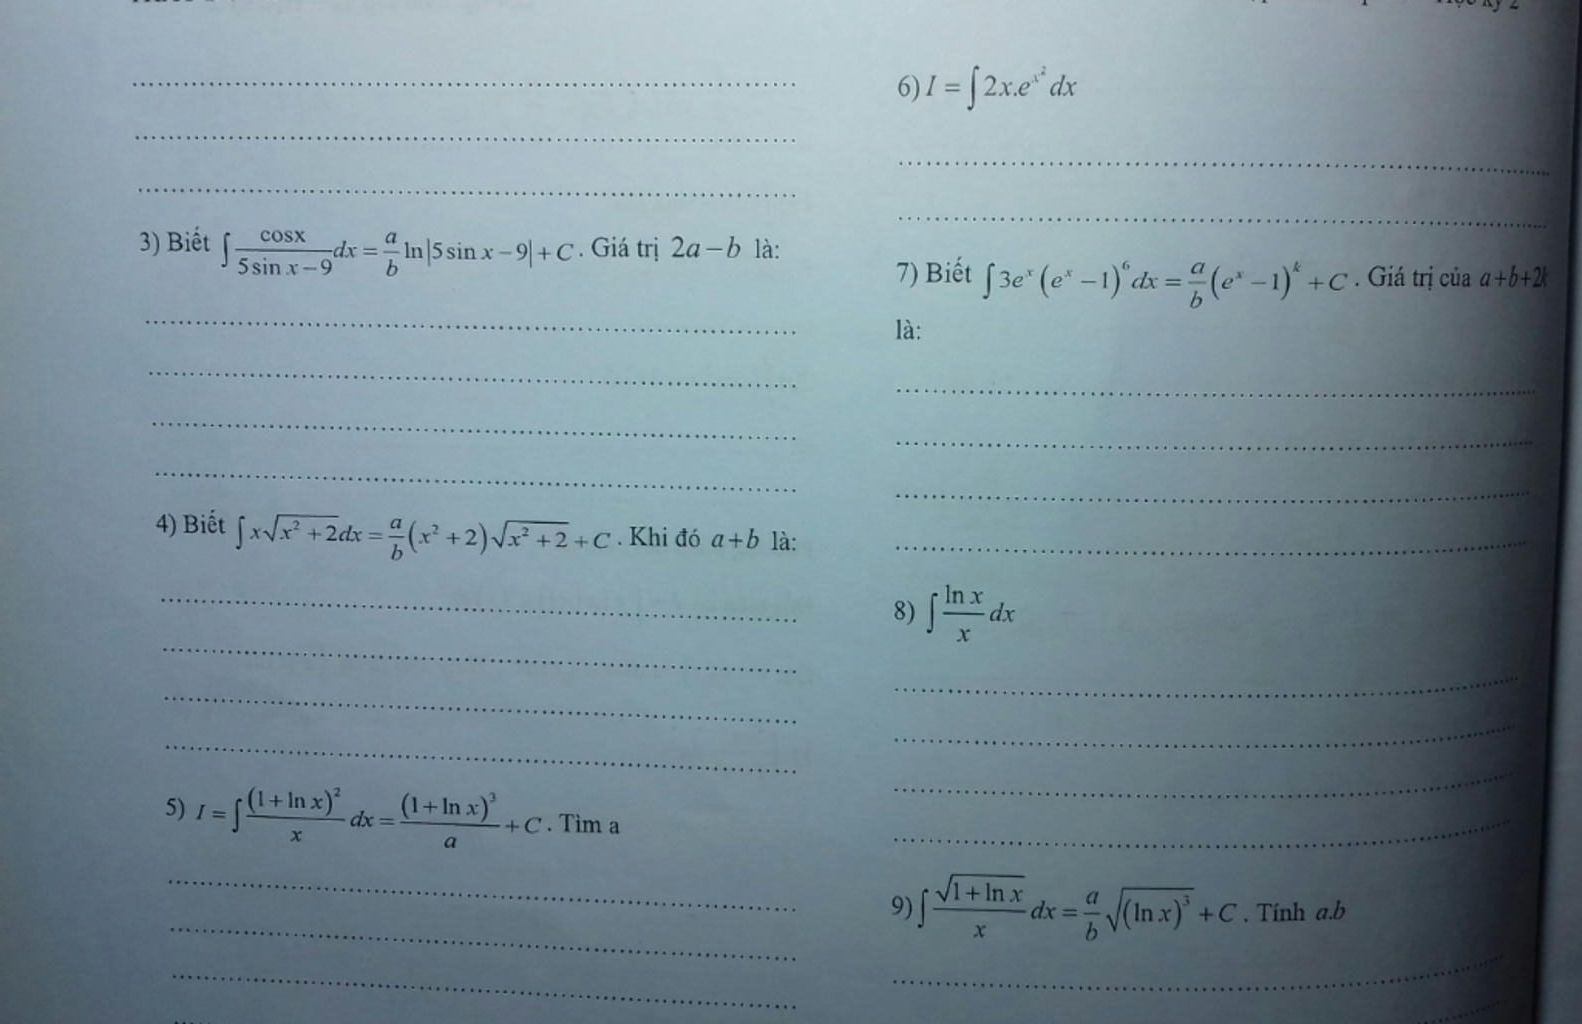 Học kỳ 2
3) Biết ∫ cosx / (5 sin x − 9) dx = a/b ln|5 sin x − 9| + C. Giá trị 2a − b là:
4) Biết ∫ x√(x² + 2)dx = a/b (x² + 2)√(x² + 2) + C. Khi đó a+b là:
5) I = ∫ (1 + ln x)² / x dx = (1 + ln x)³ / a + C. Tìm a
6) I = ∫ 2x.e^(x²) dx
7) Biết ∫ 3eˣ (eˣ − 1)⁶ dx = a/b (eˣ − 1)ᵏ + C. Giá trị của a+b+2k
là:
8) ∫ ln x / x dx
9) ∫ √(1 + ln x) / x dx = a/b √((ln x)³) + C. Tính a.b